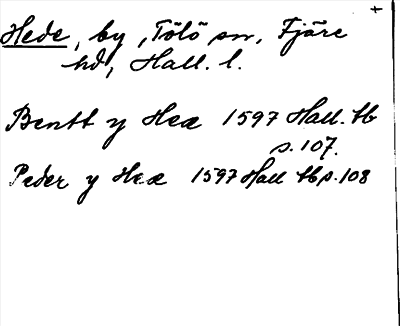 +
Hede, by, Tölö sn, Fjäre
hd, Hall. l.
Bentt y Hee 1597 Hall. tb
s. 107.
Peder y Hee 1597 Hall tb s. 108